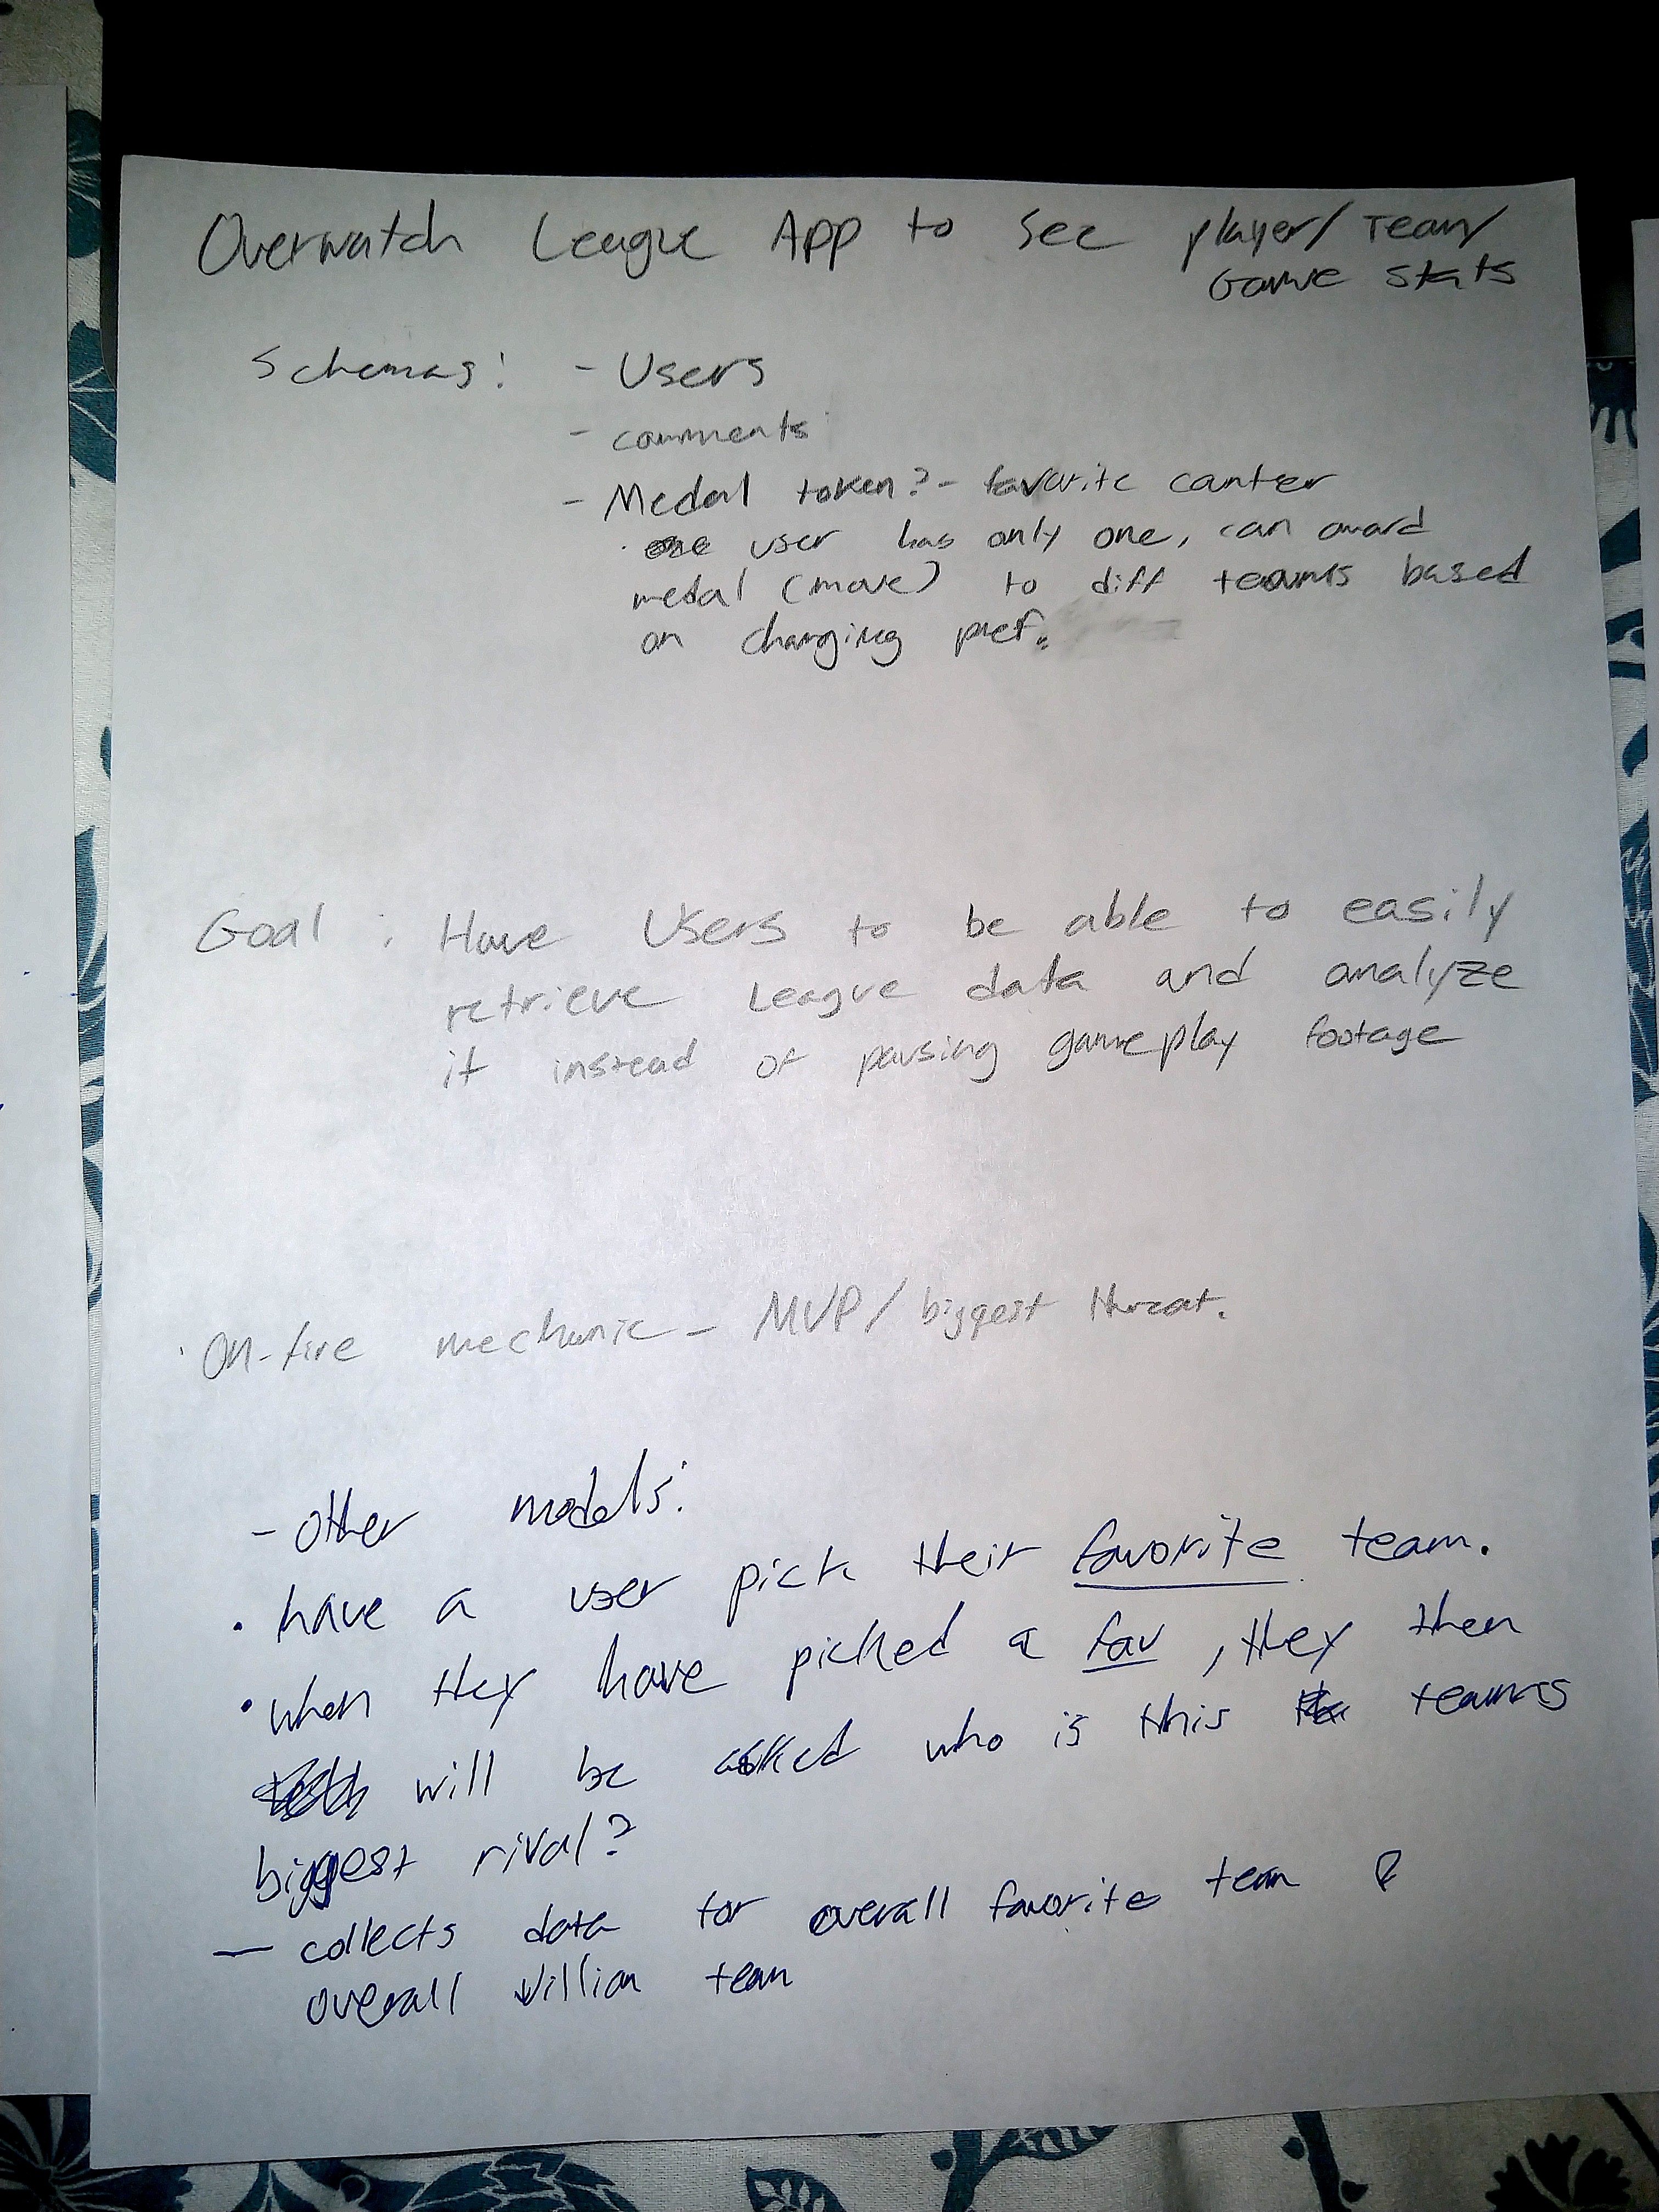 Overwatch League App to see player/Team/
Game stats
Schemas: - Users
- comments
- Medal token? - favorite counter
· one user has only one, can award
medal (move) to diff teams based
on changing pref.
Goal : Have Users to be able to easily
retrieve League data and analyze
it instead of parsing gameplay footage
· On-fire mechanic - MVP/biggest threat.
- other models:
• have a user pick their favorite team.
• when they have picked a fav, they then
will be asked who is this teams
biggest rival?
— collects data for overall favorite team &
overall villian team